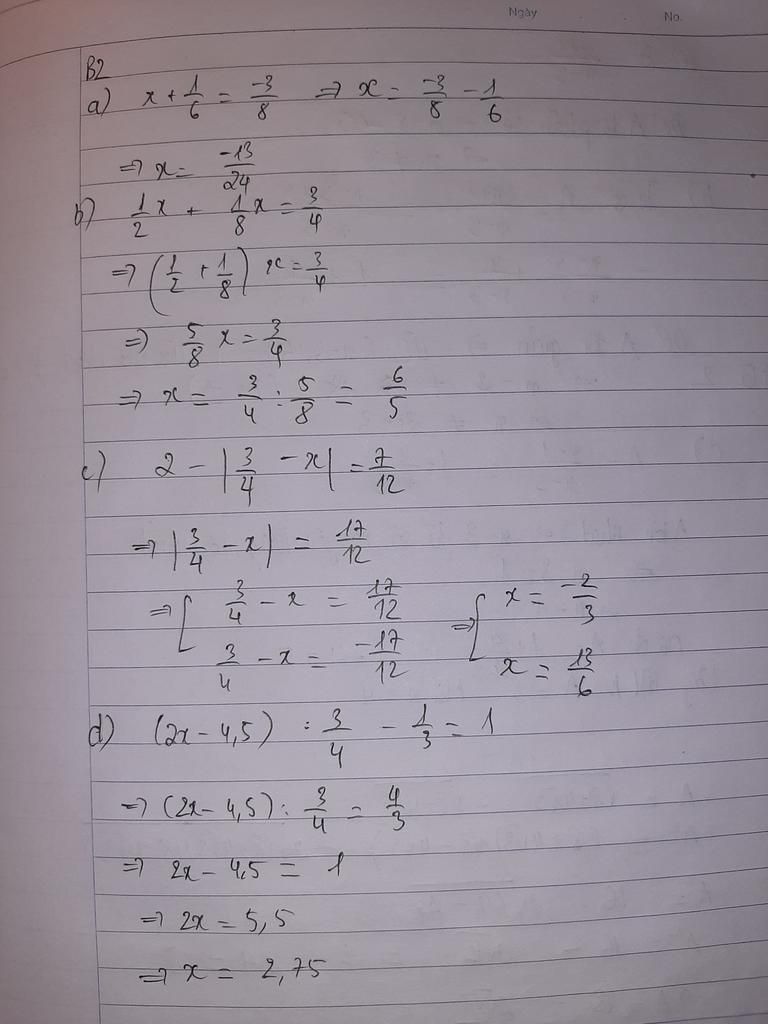 Ngày No.
B2
a) x + 1/6 = -3/8 => x = -3/8 - 1/6
=> x = -13/24
b) 1/2 x + 1/8 x = 3/4
=> (1/2 + 1/8) x = 3/4
=> 5/8 x = 3/4
=> x = 3/4 : 5/8 = 6/5
c) 2 - |3/4 - x| = 7/12
=> |3/4 - x| = 17/12
=> [ 3/4 - x = 17/12 => [ x = -2/3
3/4 - x = -17/12 x = 13/6
d) (2x - 4,5) : 3/4 - 1/3 = 1
=> (2x - 4,5) : 3/4 = 4/3
=> 2x - 4,5 = 1
=> 2x = 5,5
=> x = 2,75